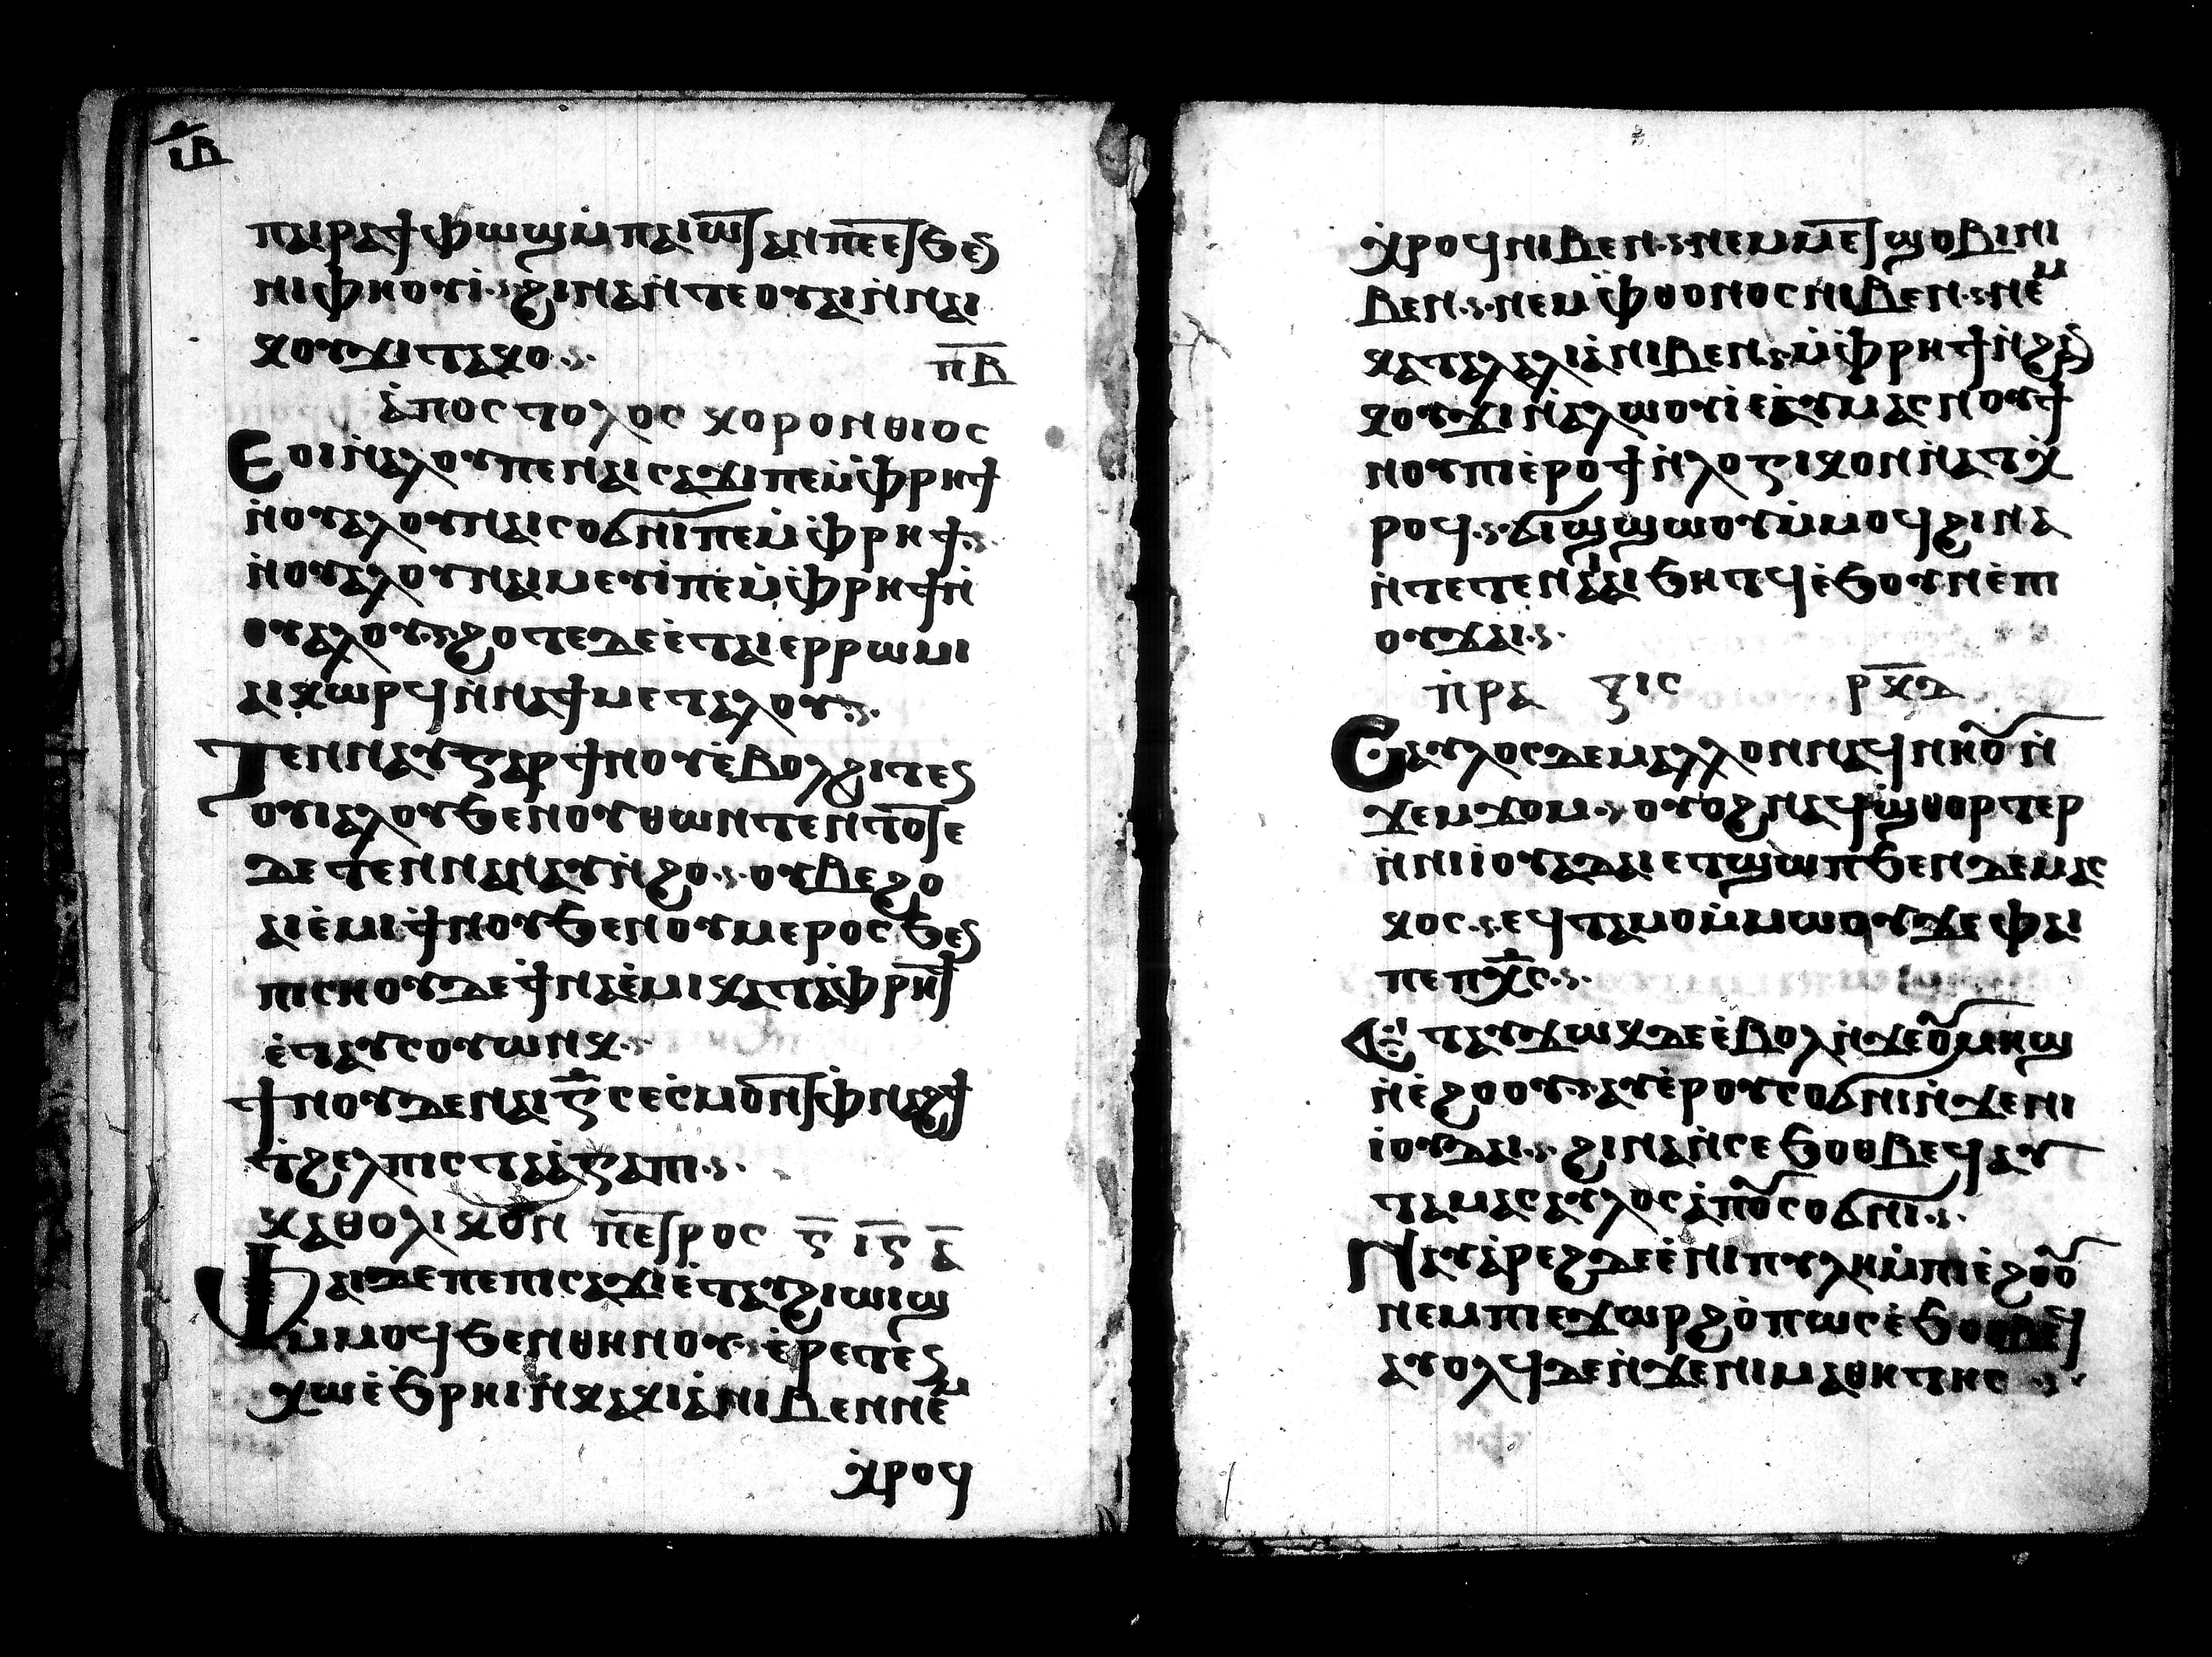 ⲓ̅ⲃ̅
ⲡⲁⲓⲣⲁϯ ⲫⲱϣ ⲙ̀ⲡⲁⲓⲱ̅ⲧ ⲁⲛ ⲡⲉⲉⲧϧⲉⲛ
ⲛⲓⲫⲏⲟⲩⲓ̀· ϩⲓⲛⲁ ⲛ̀ⲧⲉⲟⲩⲁⲓ ⲛ̀ⲛⲁⲓ
ⲕⲟⲩϫⲓ ⲧⲁⲕⲟ
ⲡ̅ⲃ̅
ⲁ̀ⲡⲟⲥⲧⲟⲗⲟⲥ ⲕⲟⲣⲟⲛⲑⲓⲟⲥ
Ⲉⲟⲓ ⲛ̀ⲁⲗⲟⲩ ⲡⲉ ⲛⲁⲓⲥⲁϫⲓ ⲡⲉ ⲙ̀ⲫⲣⲏϯ
ⲛ̀ⲟⲩⲁⲗⲟⲩ ⲛⲁⲓⲥⲟϭⲛⲓ ⲡⲉ ⲙ̀ⲫⲣⲏϯ
ⲛ̀ⲟⲩⲁⲗⲟⲩ ⲛⲁⲙⲉⲩⲓ̀ ⲡⲉ ⲙ̀ⲫⲣⲏϯ ⲛ̀
ⲟⲩⲁⲗⲟⲩ· ϩⲟⲧⲉ ⲇⲉ ⲉ̀ⲧⲁⲓⲉⲣⲣⲱⲙⲓ
ⲁⲓⲕⲱⲣϥ ⲛ̀ⲛⲁϯⲙⲉⲧⲁⲗⲟⲩ
Ⲧⲉⲛⲛⲁⲩ ⲅⲁⲣ ϯⲛⲟⲩ ⲉ̀ⲃⲟⲗϩⲓⲧⲉⲛ
ⲟⲩⲓⲁⲗ ⲟⲩϧⲉⲛ ⲟⲩⲑⲱⲛⲧⲉⲛ ⲧⲟ̅ⲧⲉ
ⲇⲉ ⲧⲉⲛⲛⲁⲛⲁⲩ ⲛ̀ϩⲟ· ⲟⲩⲃⲉ ϩⲟ
ⲁⲓⲉ̀ⲙⲓ ϯⲛⲟⲩ ϧⲉⲛ ⲟⲩⲙⲉⲣⲟⲥ ϧⲉⲛ
ⲡⲓⲥⲏⲟⲩ ⲇⲉ ϯⲛⲁⲉ̀ⲙⲓ ⲕⲁⲧⲁ ⲫⲣⲏ̅ϯ
ⲉ̀ⲧⲁⲩⲥⲟⲩⲱⲛⲕ·
ϯⲛⲟⲩ ⲇⲉ ⲛⲁⲓ ⲅ̅ ⲥⲉⲥ̀ⲙⲟ̅ⲛⲧ ⲫ̀ⲛⲁϩϯ
ⲧ̀ϩⲉⲗⲡⲓⲥ ⲧⲁⲅⲁⲡⲓ
ⲕⲁⲑⲟⲗⲓⲕⲟⲛ ⲡⲉ̅ⲧⲣⲟⲥ ⲅ̅ ⲓ̅ⲅ̅ ⲁ̅
Ⲫⲁⲓ ⲇⲉ ⲡⲉ ⲡⲓⲥⲁϫⲓ ⲉ̀ⲧⲁⲩϩⲓⲱⲓϣ
ⲙ̀ⲙⲟϥ ϧⲉⲛ ⲑⲏⲛⲟⲩ· ⲉ̀ⲣⲉⲧⲉⲛ
ⲭⲱ ⲉ̀ϧⲣⲏⲓ ⲛ̀ⲕⲁⲕⲓⲁ ⲛⲓⲃⲉⲛ ⲛⲉⲙ
ⲭ̀ⲣⲟϥ
ⲭ̀ⲣⲟϥ ⲛⲓⲃⲉⲛ· ⲛⲉⲙ ⲙⲉ̅ⲧϣⲟⲃⲓ ⲛⲓ
ⲃⲉⲛ· ⲛⲉⲙ ⲫⲑⲟⲛⲟⲥ ⲛⲓⲃⲉⲛ· ⲛⲉⲙ
ⲕⲁⲧⲁⲗⲁⲗⲓⲁ ⲛⲓⲃⲉⲛ· ⲙ̀ⲫⲣⲏϯ ⲛ̀ϩⲁⲛ
ⲕⲟⲩϫⲓ ⲛ̀ⲁⲗⲱⲟⲩⲓ ⲉⲁⲩⲙⲁⲥⲛⲟⲩϯ
ⲛⲟⲩ ⲡⲓⲉ̀ⲣⲟϯ ⲛ̀ⲗⲟⲅⲓⲕⲟⲛ ⲛ̀ⲁⲧⲭ
ⲣⲟϥ· ϭⲓϣϣⲱⲟⲩ ⲙ̀ⲙⲟϥ ϩⲓⲛⲁ
ⲛ̀ⲧⲉⲧⲉⲛⲁⲓⲁⲓ ϧⲏⲧϥ ⲉ̀ϧⲟⲩⲛ ⲉ̀ⲡⲓ
ⲟⲩϫⲁⲓ·
ⲡ̀ⲣⲁ ⲝⲓⲥ ⲣ̅ⲕ̅ⲇ̅
Ⲥⲁⲩⲗⲟⲥ ⲇⲉ ⲙⲁⲗⲗⲟⲛ ⲛⲁϥⲛⲏⲟⲩ ⲛ̀
ϫⲉⲙϫⲟⲙ· ⲟⲩⲟϩ ⲛⲁϥϣⲑⲟⲣⲧⲉⲣ
ⲛ̀ⲛⲓⲓⲟⲩⲇⲁⲓ ⲉⲧϣⲱⲡ ϧⲉⲛ ⲇⲉⲙⲁⲥ
ⲕⲟⲥ· ⲉϥⲧⲁⲙⲟ ⲙ̀ⲙⲱⲟⲩ ϫⲉ ⲫⲁⲓ
ⲡⲉ ⲡⲭ̅ⲥ̅·
Ⲉⲧⲁⲩϫⲱⲕ ⲇⲉ ⲉ̀ⲃⲟⲗ ⲛ̀ϫⲉⲟⲩⲙⲏϣ
ⲛ̀ⲉ̀ϩⲟⲟⲩ· ⲁⲩⲉ̀ⲣⲟⲩⲥⲟϭⲛⲓ ⲛ̀ϫⲉⲛⲓ
ⲓⲟⲩⲇⲁⲓ· ϩⲓⲛⲁ ⲛ̀ⲥⲉϧⲟⲑⲃⲉϥ ⲁⲩ
ⲧⲁⲙⲁⲥⲁⲩⲗⲟⲥ ⲁ̀ⲡⲟⲩⲥⲟϭⲛⲓ·
Ⲛⲁⲩⲁ̀ⲣⲉϩ ⲇⲉ ⲉ̀ⲛⲓⲡⲩⲗⲏ ⲙ̀ⲡⲓⲉ̀ϩⲟⲟⲩ
ⲛⲉⲙ ⲡⲓⲉϫⲱⲣϩ ϩⲟⲡⲱⲥ ⲉ̀ϧⲟⲑⲃⲉϥ
ⲁⲩⲟⲗϥ ⲇⲉ ⲛ̀ϫⲉⲛⲓⲙⲁⲑⲏⲧⲏⲥ